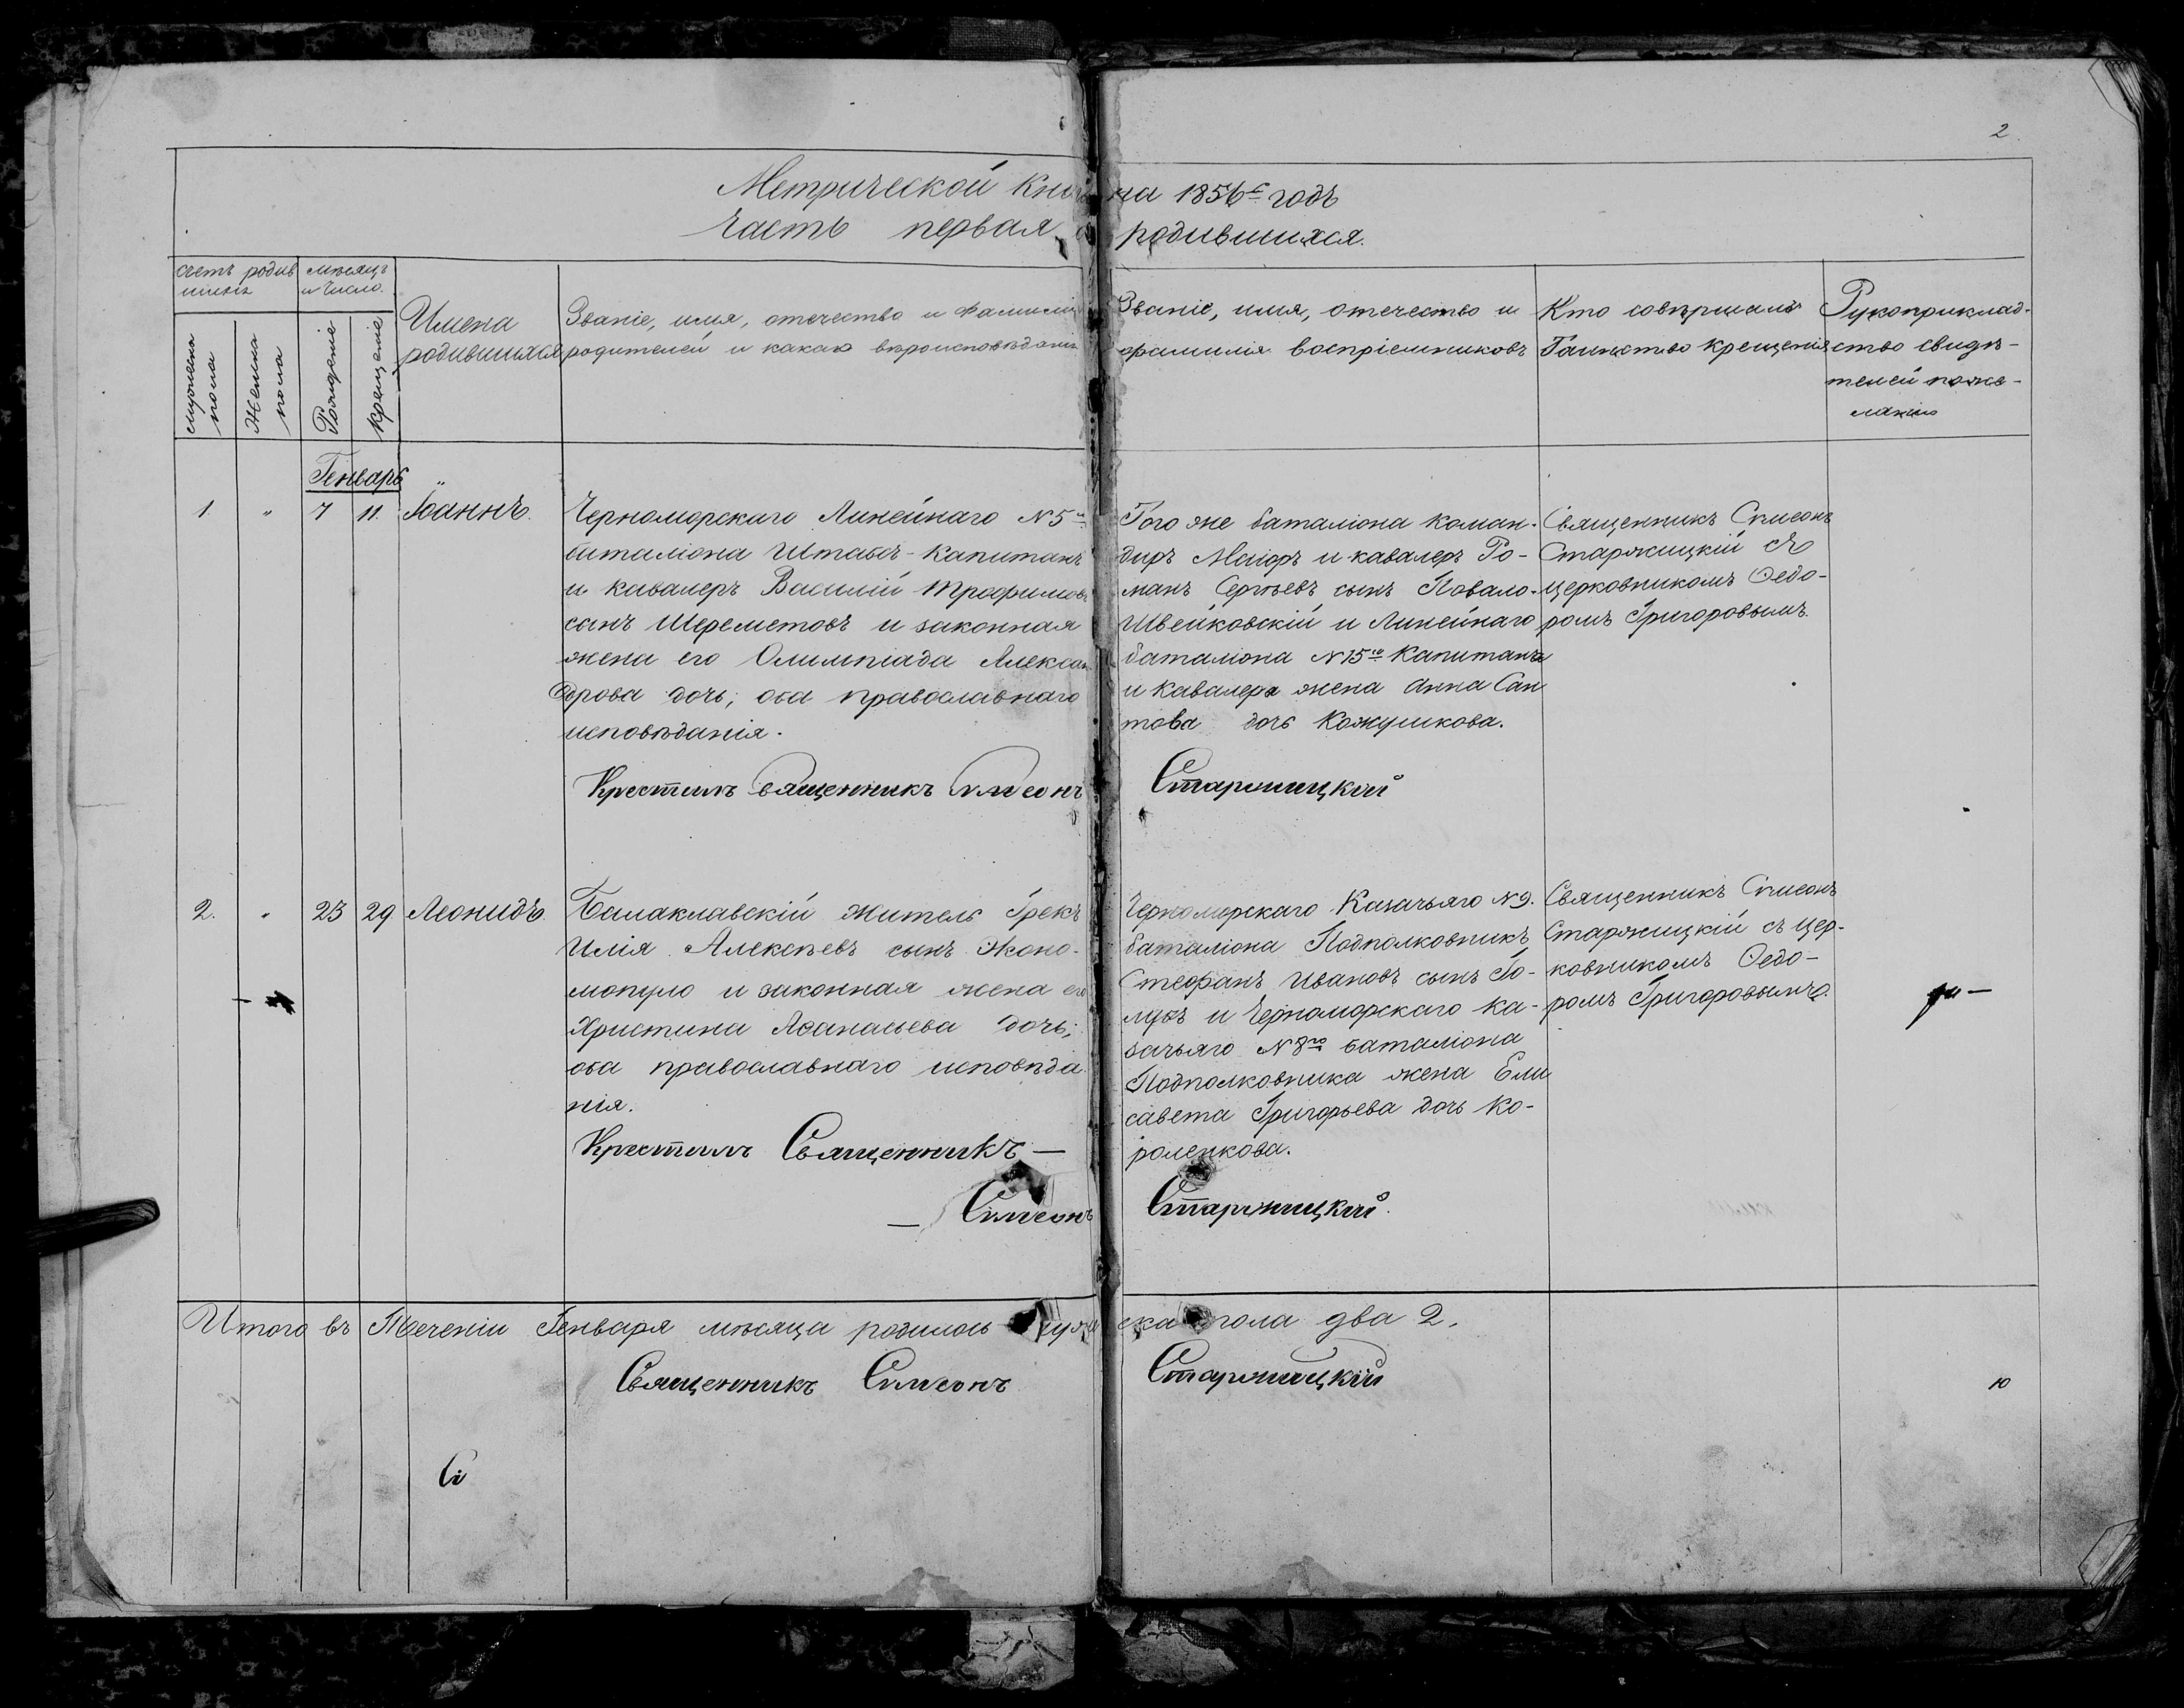 2.
Метрической Кни на 1856 годъ
Часть первая о родившихся.
Счетъ родив
шихъ
мѣсяцъ
и число.
мужеска
пола
Женска
пола
Рожденіе
крещеніе
Имена
родившихся
Званіе, имя, отечество и Фамилія
родителей и какого вѣроисповѣданія
Званіе, имя, отечество и
фамилія воспріемниковъ
Кто совершалъ
Таинство крещенія
Рукоприклад-
ство свидѣ-
телей по же-
ланію
Генварь
1. " 7 11. Іоаннъ.
Черноморскаго Линейнаго N 5го
баталіона Штабсъ-Капитанъ
и кавалеръ Василій Трофимовъ
сынъ Шереметовъ и законная
жена его Олимпіада Алексан
дрова дочь; оба православнаго
исповѣданія.
Крестилъ Священникъ Симеонъ
Того же баталіона коман-
диръ Маіоръ и кавалеръ Ро-
манъ Сергѣевъ сынъ Повало-
Швейковскій и Линейнаго
баталіона N 15го Капитана
и Кавалера жена Анна Сан
това дочь Кожушкова.
Старжицкій
Священникъ Симеонъ
Старжицкій съ
церковникомъ Ѳедо-
ромъ Григоровымъ.
2. " 23 29 Леонидъ.
Балаклавскій житель Грекъ
Илія Алексѣевъ сынъ Эконо-
мопуло и законная жена его
Христина Аѳанасьева дочь;
оба православнаго исповѣда
нія.
Крестилъ Священникъ —
— Симеонъ
Черноморскаго Казачьяго N 9.
баталіона Подполковникъ
Стефанъ Ивановъ сынъ Го-
лубъ и Черноморскаго Ка-
зачьяго N 8го баталіона
Подполковника жена Ели
савета Григорьева дочь Ко-
роленкова.
Старжицкій.
Священникъ Симеонъ
Старжицкій съ цер-
ковникомъ Ѳедо-
ромъ Григоровымъ.
Итого въ Теченіи Генваря мѣсяца родилось муже ска пола два 2.
Священникъ Симеонъ Старжицкій
ю
Сі